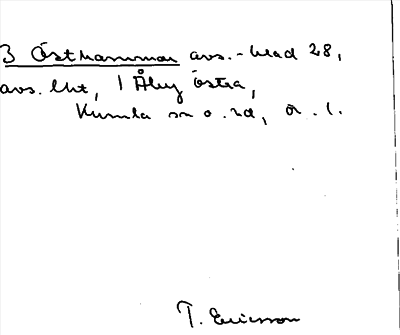 3 Östhammar avs.-blad 28,
avs. lht, 1 Åby östra,
Kumla sn o. hd, Ö. l.
T. Ericsson